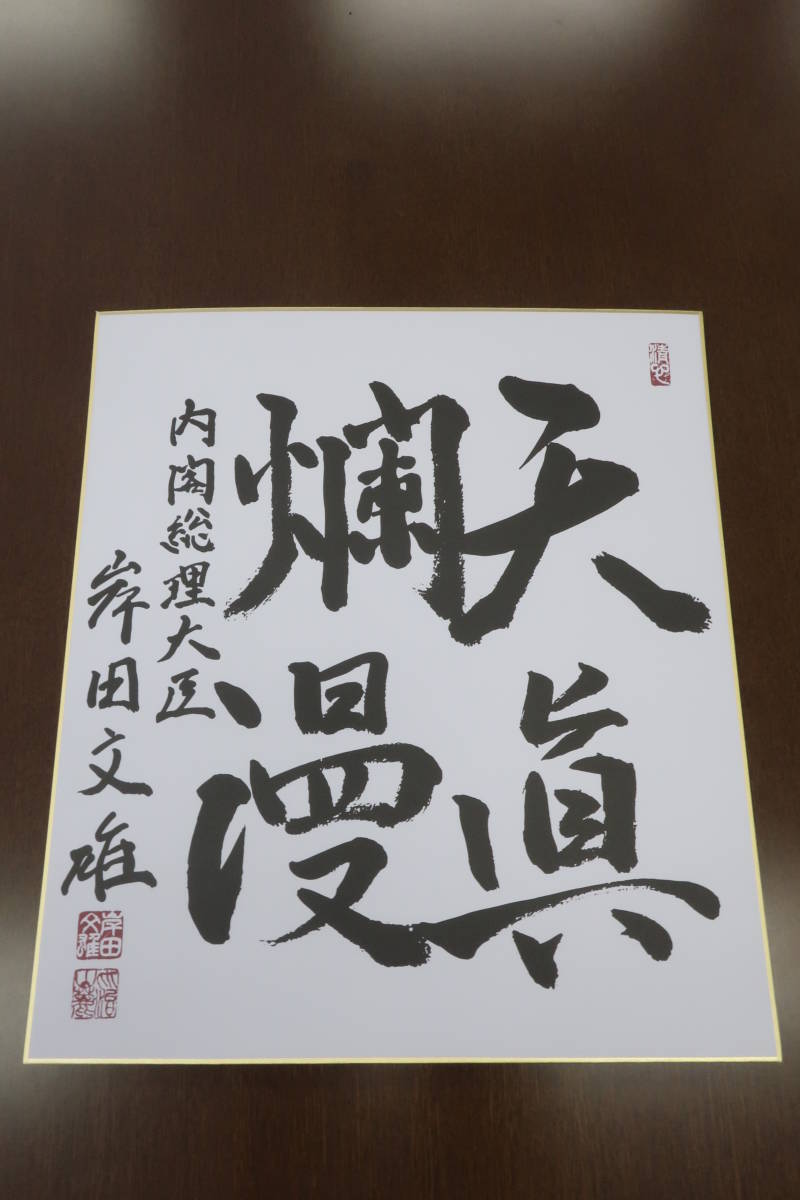 天眞
爛漫
内閣総理大臣
岸田文雄
岸田
文雄